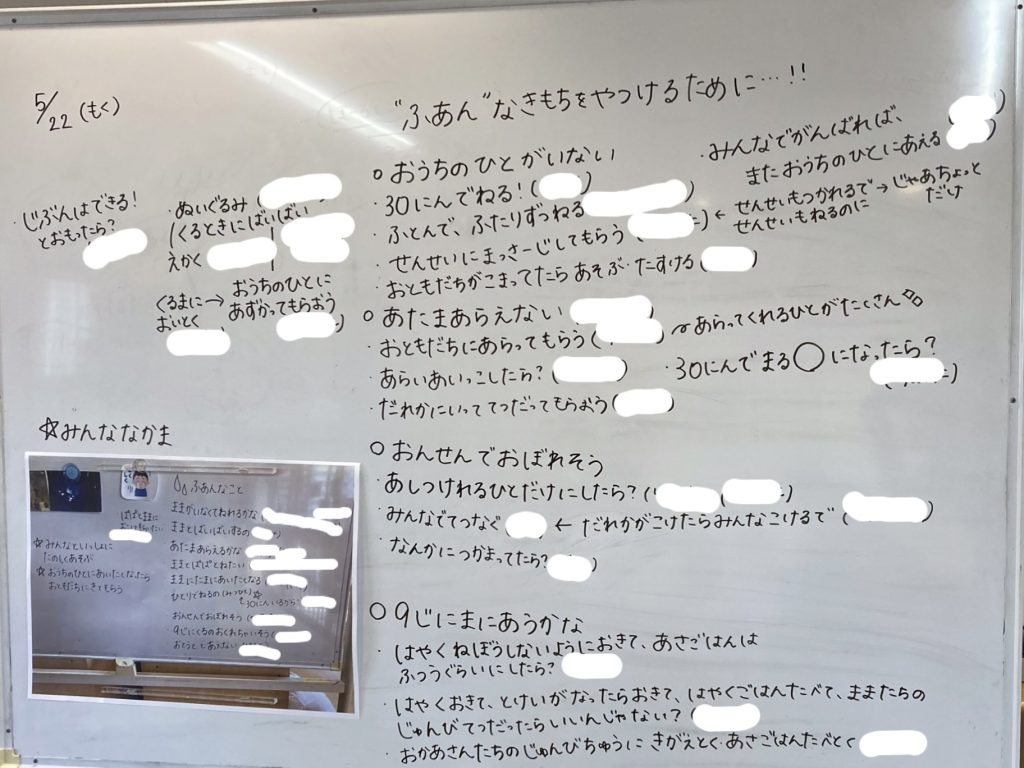 5/22(もく)
"ふあん"なきもちをやつけるために…!!
・じぶんはできる!
とおもったら?
・ぬいぐるみ(
(くるときにばいばい
えかく
くるまに→おうちのひとに
おいとく
あずかってもらおう
○おうちのひとがいない
・30にんでねる!( )
・ふとんで、ふたりずつねる
・せんせいにまっさーじしてもらう( )←せんせいもつかれるで→じゃあちょっと
せんせいもねるのに
だけ
・おともだちがこまってたらあそぶ・たすける( )
・みんなでがんばれば、
またおうちのひとにあえる( )
○あたまあらえない
・おともだちにあらってもらう( )〜あらってくれるひとがたくさん
・あらいあいっこしたら?( )
・30にんでまる○になったら?
・だれかにいっててつだってもらおう( )
○おんせんでおぼれそう
・あしつけれるひとだけにしたら?( )
・みんなでてつなぐ( )←だれかがこけたらみんなこけるで( )
・なんかにつかまってたら?
○9じにまにあうかな
・はやくねぼうしないようにおきて、あさごはんは
ふつうぐらいにしたら?
・はやくおきて、とけいがなったらおきて、はやくごはんたべて、ままたちの
じゅんびてつだったらいいんじゃない?( )
・おかあさんたちのじゅんびちゅうにきがえとく・あさごはんたべとく
☆みんななかま
ふあんなこと
ままがいなくてねれるかな(
ままとばいばいするの
あたまあらえるかな
ままとぱぱとねたい
ままにたまにあいたくなる
ひとりでねるの
30にんいるから
おんせんでおぼれそう
9じにくるのおくれちゃいそう
おとうととあえない
ぱぱとままに
☆みんなといっしょに
たのしくあそぶ
☆おうちのひとにあいたくなったら
おともだちにきてもらう